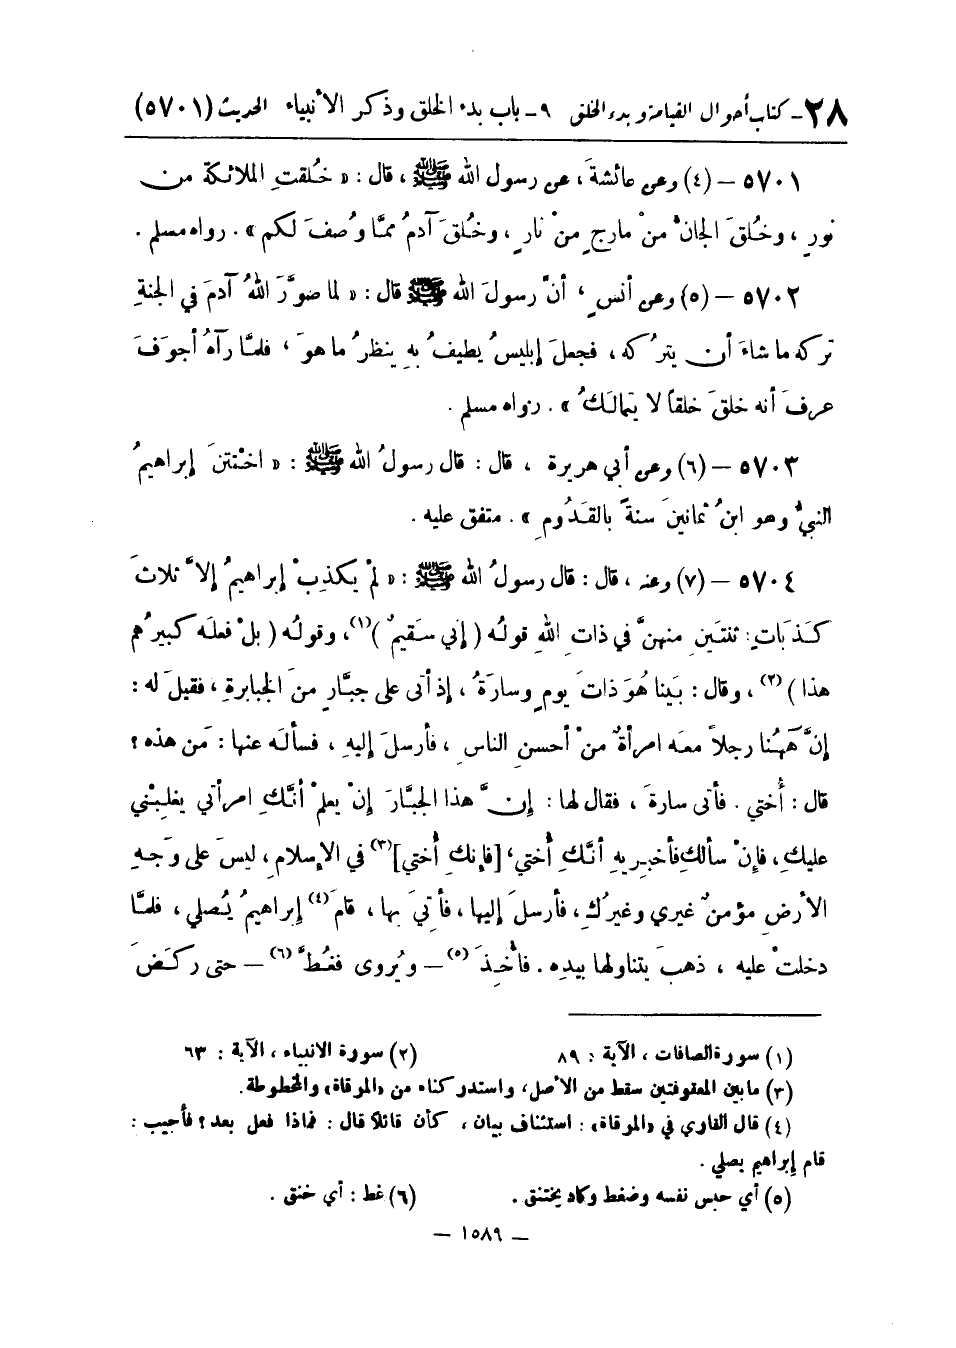 ٢٨- كتاب أحوال القيامة وبدء الخلق ٩- باب بدء الخلق وذكر الأنبياء الحديث (٥٧٠١)
٥٧٠١ – (٤) وعن عائشةَ، عن رسول الله ﷺ، قال: « خُلقتِ الملائكة من
نورٍ، وخُلقَ الجانُّ منْ مارجٍ منْ نارٍ، وخُلقَ آدمُ ممَّا وُصفَ لكم ». رواه مسلم.
٥٧٠٢ – (٥) وعن أنسٍ، أنَّ رسولَ الله ﷺ قال: « لما صوَّرَ اللهُ آدمَ في الجنةِ
تركه ما شاءَ أن يتركه، فجعلَ إبليسُ يطيفُ بهِ ينظرُ ما هوَ، فلمَّا رآهُ أجوَفَ
عرفَ أنه خلقَ خلقاً لا يتمالكُ ». رواه مسلم.
٥٧٠٣ – (٦) وعن أبي هريرة، قال: قال رسولُ الله ﷺ: « اختتنَ إبراهيمُ
النبيُّ وهو ابنُ ثمانينَ سنةً بالقَدُومِ ». متفق عليه.
٥٧٠٤ – (٧) وعنه، قال: قال رسولُ الله ﷺ: « لمْ يكذِبْ إبراهيمُ إلاَّ ثلاثَ
كَذَباتٍ: ثنتَينِ منهنَّ في ذاتِ اللهِ قولُه ( إني سَقيمٌ )(١)، وقولُه ( بلْ فعلَه كبيرُهم
هذا )(٢)، وقال: بَينا هُوَ ذاتَ يومٍ وسارَةُ، إذ أتى على جبَّارٍ منَ الجبابرةِ، فقيلَ له:
إنَّ هَهُنا رجلاً معَه امرأةٌ منْ أحسنِ الناسِ، فأرسلَ إليهِ، فسألَه عنها: مَن هذه؟
قال: أُختي. فأتى سارةَ، فقال لها: إنَّ هذا الجبَّارَ إنْ يعلمْ أنَّكِ امرأتي يغلِبْني
عليكِ، فإنْ سألكِ فأخبريهِ أنَّكِ أُختي، [فإنكِ أُختي](٣) في الإسلامِ، ليسَ على وَجهِ
الأرضِ مؤمنٌ غيري وغيرُكِ، فأرسلَ إليها، فأتيَ بها، قامَ(٤) إبراهيمُ يُصلي، فلمَّا
دخلتْ عليه، ذهبَ يتناولها بيدِه. فأُخِذَ(٥) – ويُروى فغُطَّ(٦) – حتى ركَضَ
(١) سورة الصافات، الآية: ٨٩ (٢) سورة الانبياء، الآية: ٦٣
(٣) ما بين المعقوفتين سقط من الأصل، واستدركناه من «المرقاة» والمخطوطة.
(٤) قال القاري في «المرقاة»: استئناف بيان، كأن قائلاً قال: فماذا فعل بعد؟ فأجيب:
قام إبراهيم يصلي.
(٥) أي حبس نفسه وضغط وكاد يختنق. (٦) غط: أي خنق.
– ١٥٨٩ –